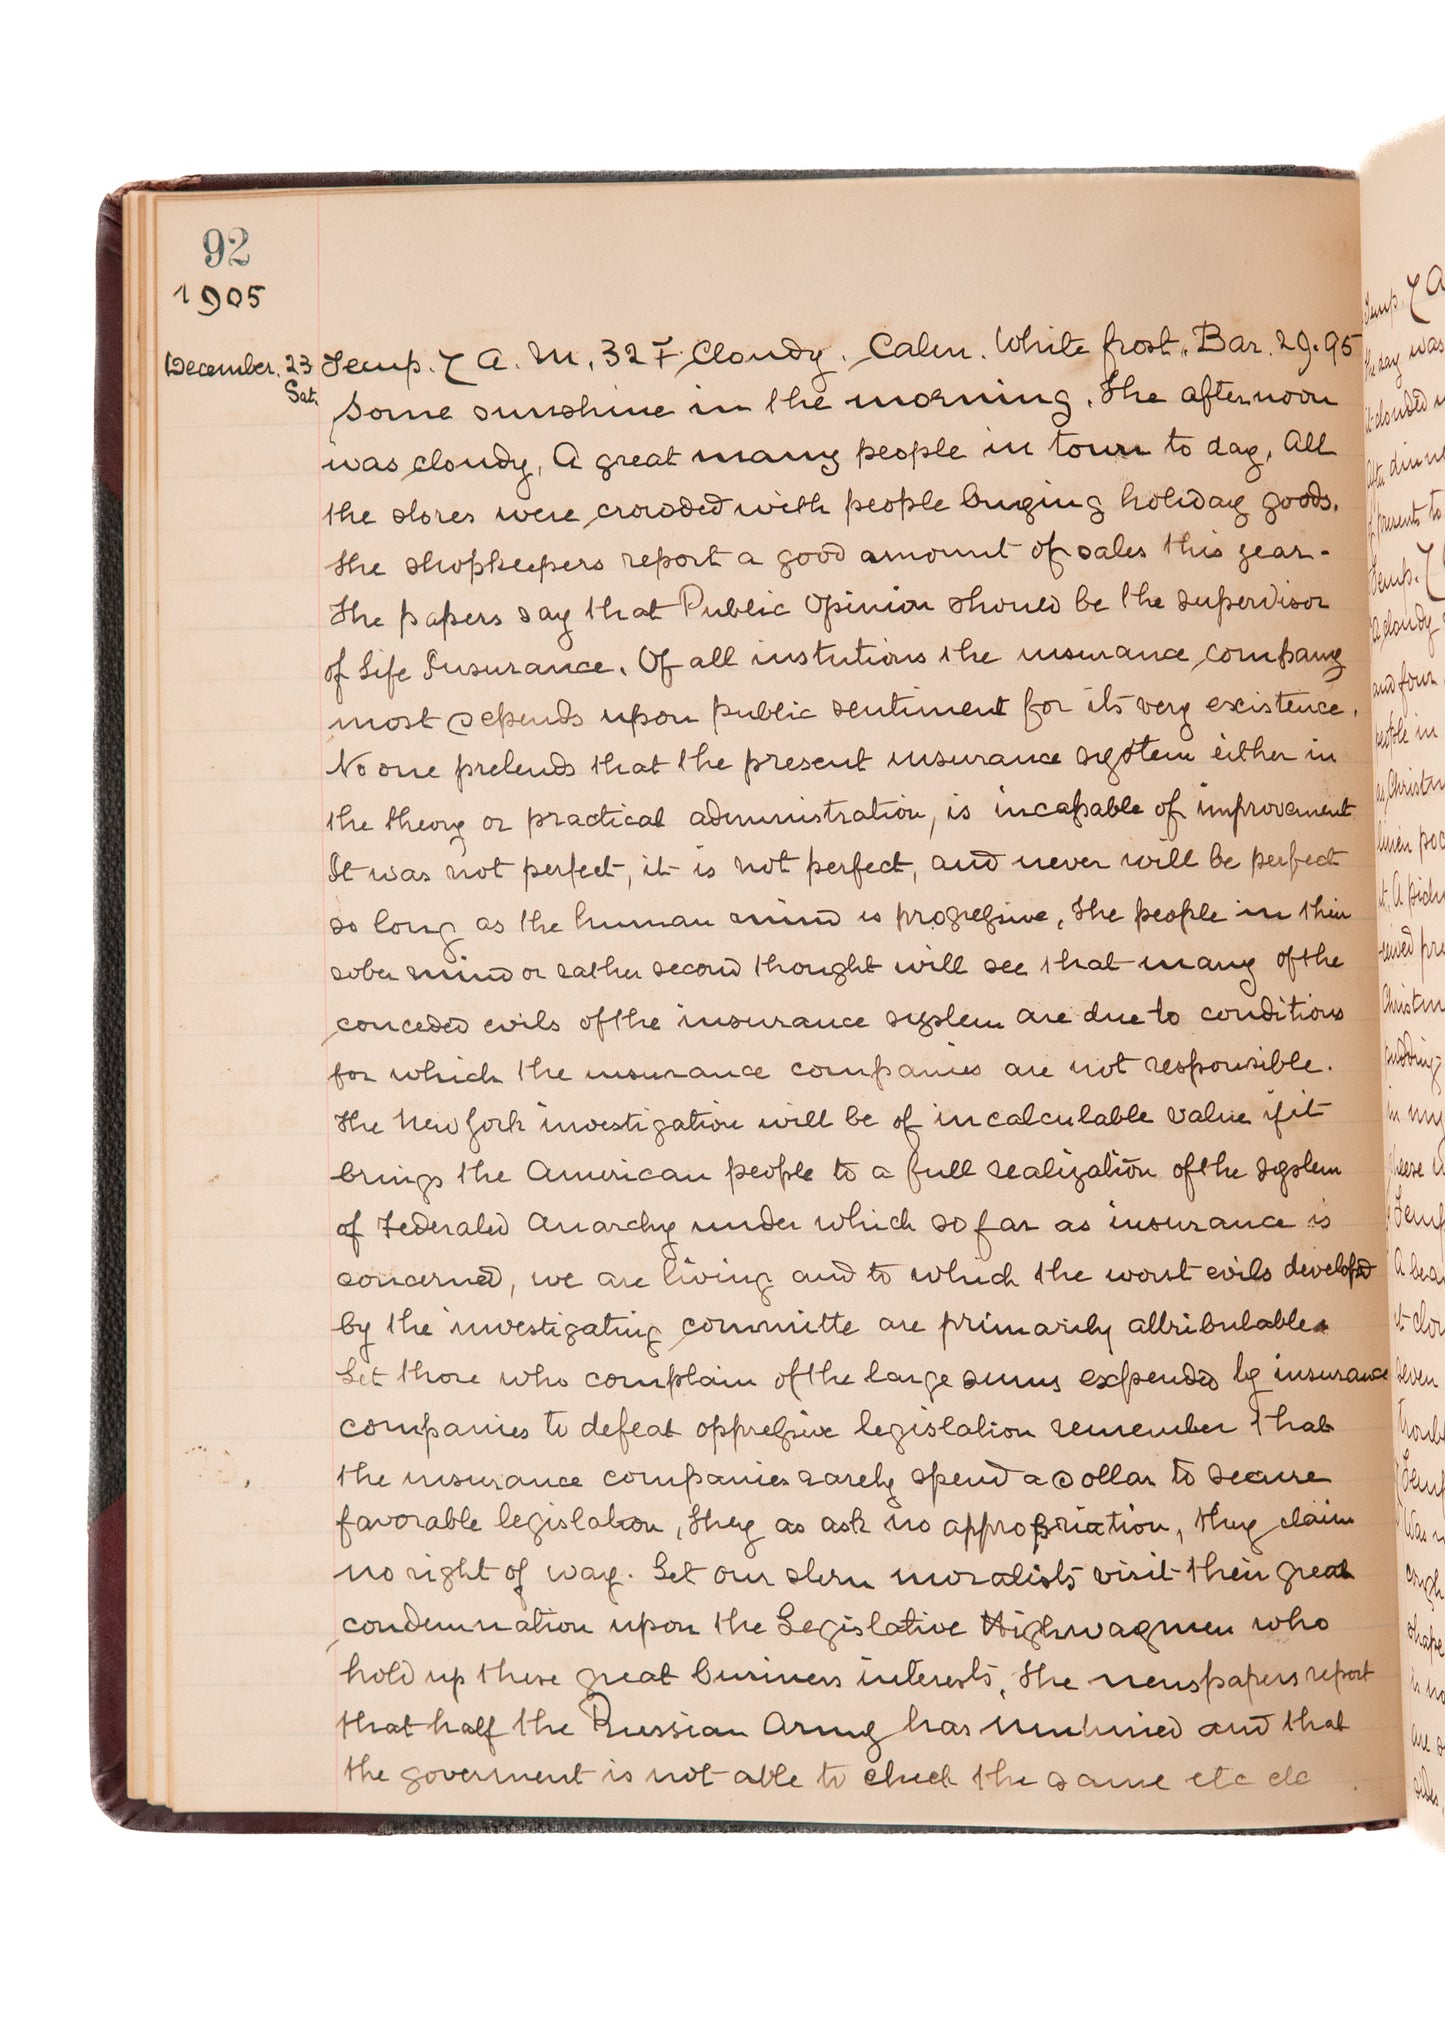 92
1905
December. 23 Temp. 7 A. M. 32 F. Cloudy. Calm. White frost. Bar. 29.95
Sat. Some sunshine in the morning. The afternoon
was cloudy. A great many people in town to day. All
the stores were crowded with people buying holiday goods.
the shopkeepers report a good amount of sales this year.
The papers say that Public Opinion should be the supervisor
of Life Insurance. Of all instutions the insurance company
most depends upon public sentiment for its very existence.
No one pretends that the present insurance system either in
the theory or practical administration, is incapable of improvement
It was not perfect, it is not perfect, and never will be perfect
so long as the human mind is progressive. The people in their
sober mind or rather second thought will see that many of the
conceded evils of the insurance system are due to conditions
for which the insurance companies are not responsible.
The New York investigation will be of incalculable value if it
brings the American people to a full realization of the system
of Federated Anarchy under which so far as insurance is
concerned, we are living and to which the worst evils developed
by the investigating committe are primarily attributable.
Let those who complain of the large sums expended by insurance
companies to defeat oppressive legislation remember that
the insurance companies rarely spend a dollar to secure
favorable legislation, They as ask no appropriation, they claim
no right of way. Let our stern moralists visit their great
condemnation upon the Legislative Highwaymen who
hold up these great business interests. The newspapers report
that half the Russian Army has mutinied and that
the goverment is not able to check the same etc etc
Temp. 7 A
the day was
it clouded
After dinne
presents to
Temp. 7
cloudy
and four
people in
as Christm
linen poc
it. A pictu
ceived pre
Christm
pudding
in my
cheese
Temp
A bea
it clou
seven
troubl
Temp
Was
cough
shape
is no
are
sides